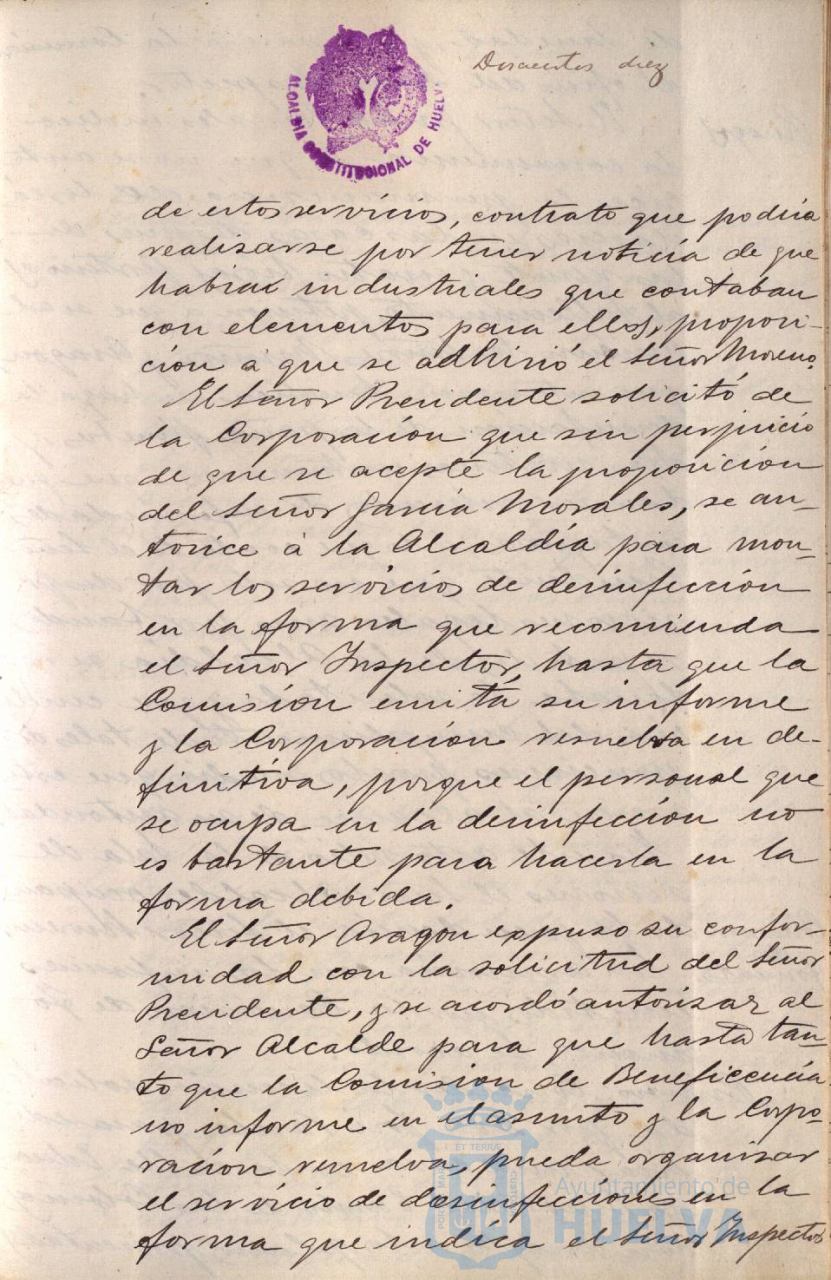 Doscientos diez
ALCALDIA CONSTITUCIONAL DE HUELVA
de estos servicios, contrato que podria
realizarse por tener noticia de que
habian industriales que contaban
con elementos para ello, proposi-
ción á que se adhirió el Señor Moreno.
El Señor Presidente solicitó de
la Corporación que sin perjuicio
de que se acepte la proposición
del Señor García Morales, se au-
torice á la Alcaldía para mon-
tar los servicios de desinfección
en la forma que recomienda
el Señor Inspector, hasta que la
Comisión emita su informe
y la Corporación resuelva en de-
finitiva, porque el personal que
se ocupa en la desinfección no
es bastante para hacerla en la
forma debida.
El Señor Aragon expuso su confor-
midad con la solicitud del Señor
Presidente, y se acordó autorizar al
Señor Alcalde para que hasta tan-
to que la Comision de Beneficencia
no informe en el asunto y la Corpo-
ración resuelva, pueda organizar
el servicio de desinfecciones en la
forma que indica el Señor Inspector
ET TERRE
Ayuntamiento de
HUELVA